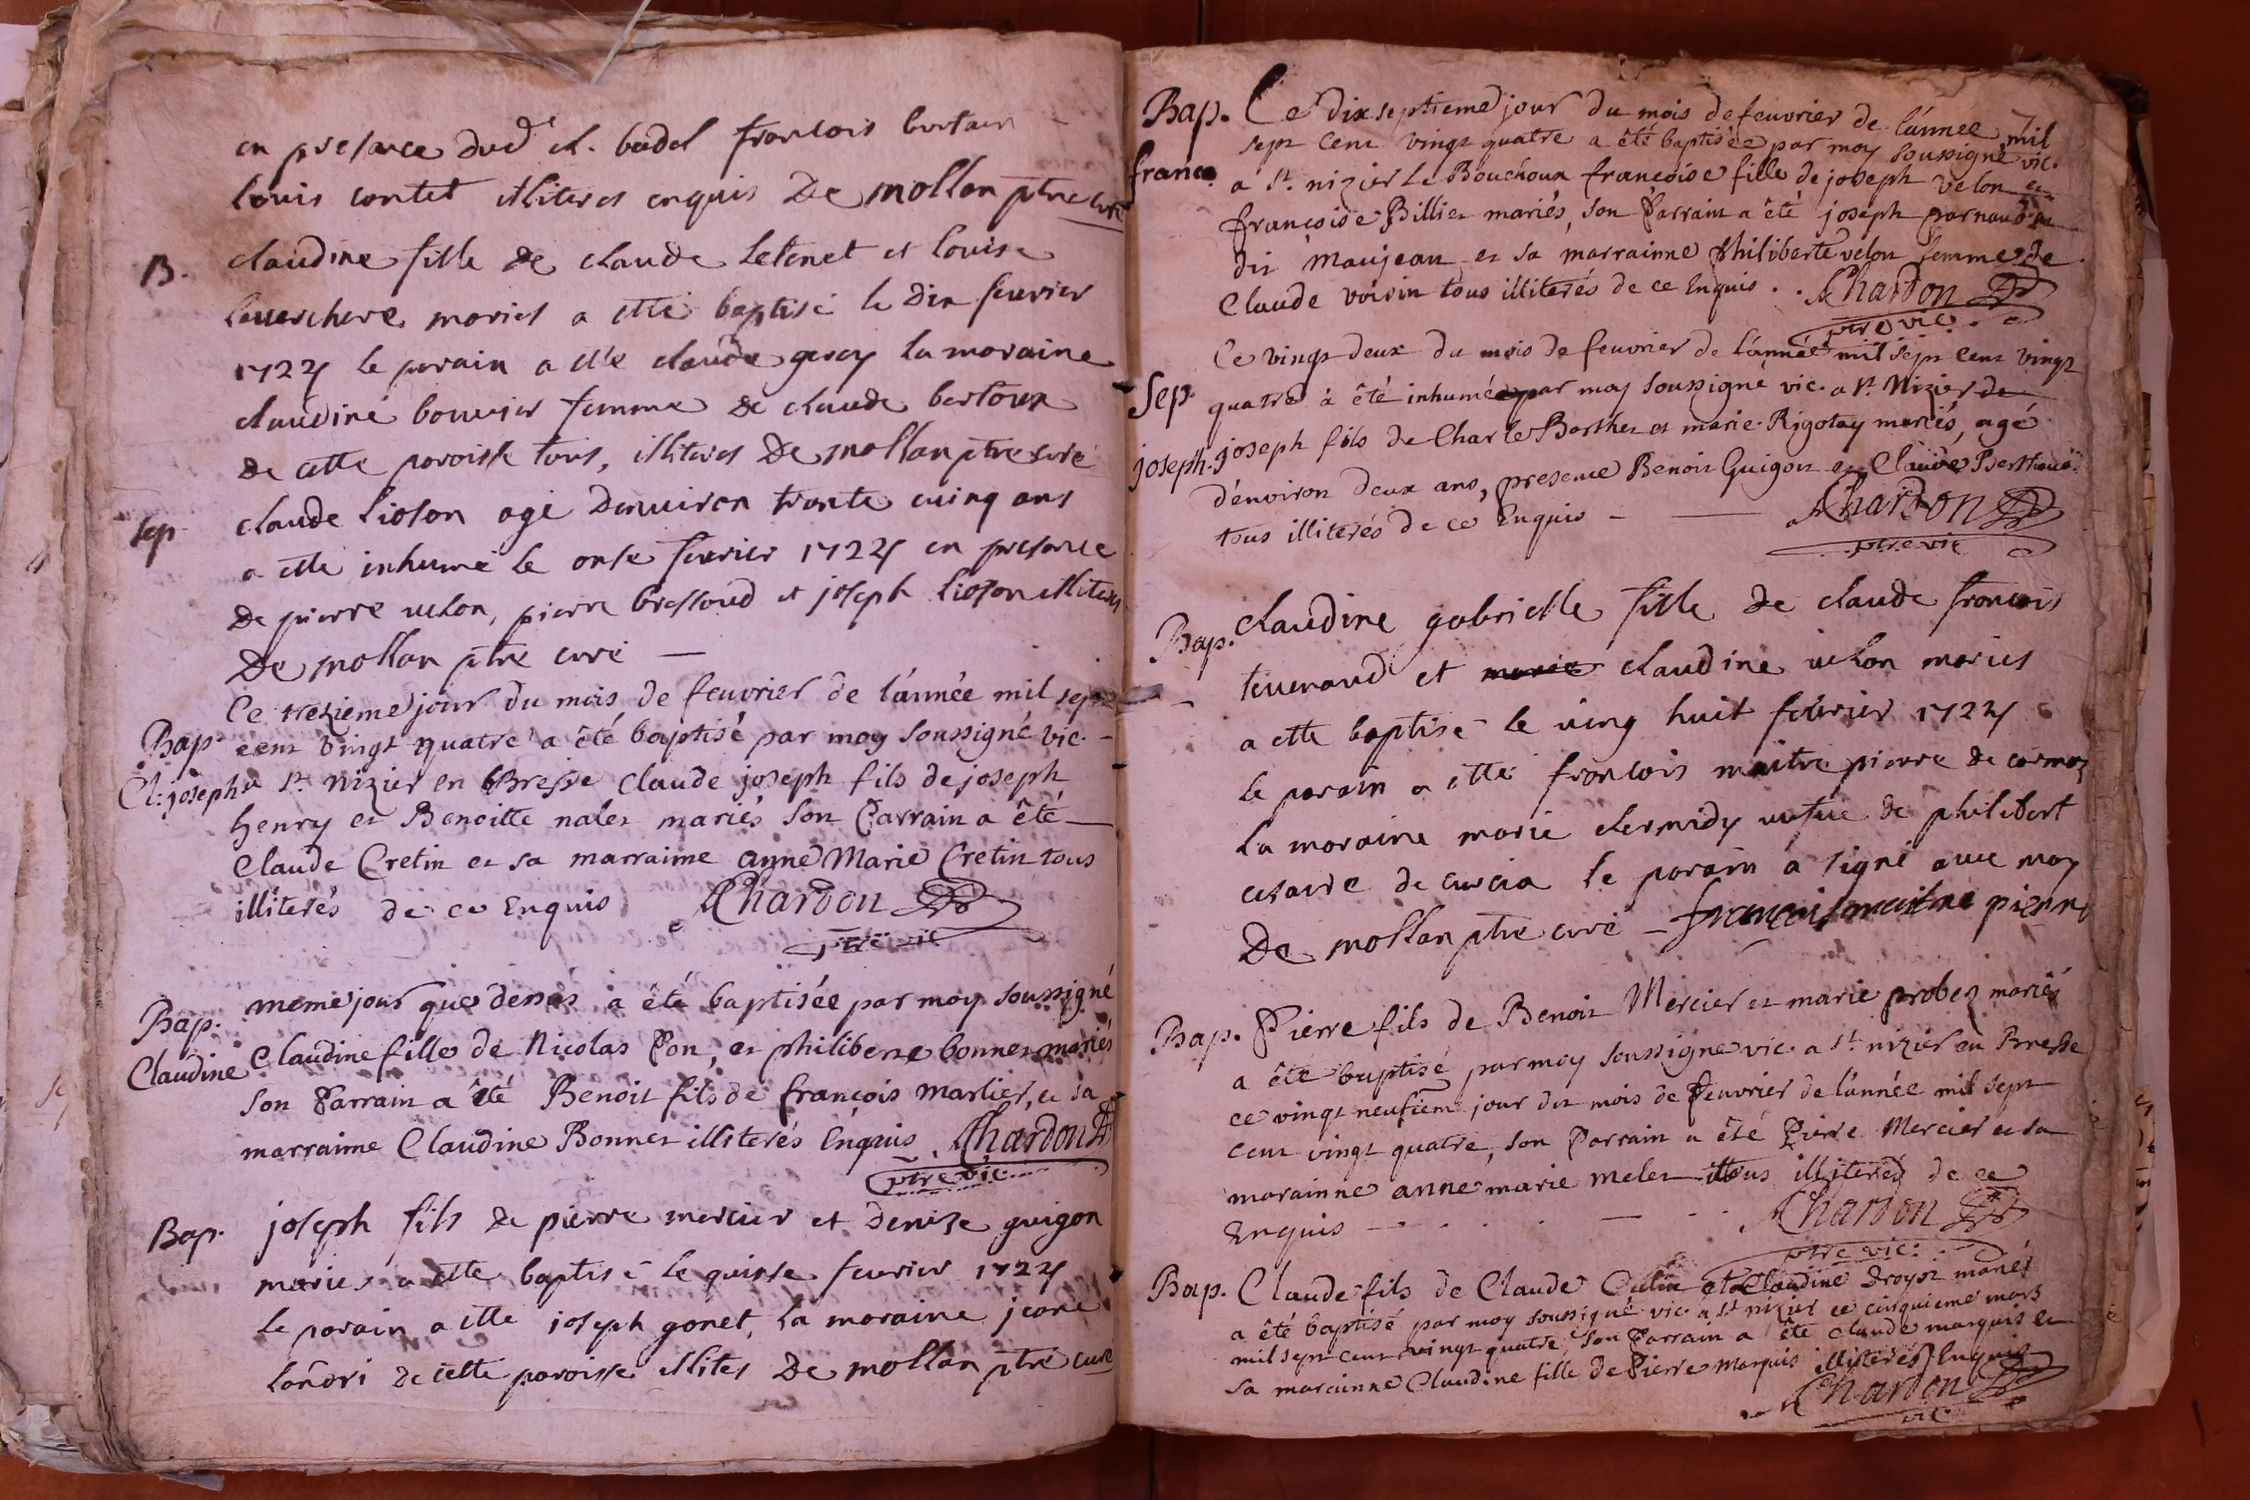 en presance dud cl. badel francois bertain
louis contet illiteres enquis De mollan ptre curé
B. claudine fille de claude letenet et louise
lauerchere mories a etté baptisé le dix feurier
1724 le porain a ette claude geroy la moraine
claudine bouvier femme de claude bertoux
de cette paroisse tous, illiteres De mollan ptre curé
Sep claude lioson agé denuiron trante cuinq ans
a etté inhumé le onse feurier 1724 en presance
de pierre uelon, pierre bressoud et joseph lioson illiteres
De mollan ptre curé —
Ce trezieme jour du mois de feuvrier de l'année mil sept
Bap. cent vingt quatre a été baptisé par moy soussigné vic.
Cl: joseph a St. nizier en Bresse claude joseph fils de joseph
henry et Benoitte nalet mariés son Parrain a été
claude Cretin et sa marraime anne Marie Cretin tous
illiterés de ce Enquis Chardon
ptre vic
Bap. meme jour que dessus a été baptisée par moy soussigné
Claudine Claudine fille de Nicolas Pon, et philiberte bonnet mariés
son Parrain a été Benoit fils de françois marlier, et sa
marraime Claudine Bonnet illiterés Enquis Chardon
ptre vic
Bap. joseph fils de pierre mercier et denise guigon
maries a ette baptisé le quinse feurier 1724
le porain a ette joseph gonet, la moraine jeane
landri de cette paroisse illites De mollan ptre curé
Bap. Ce dix septieme jour du mois de feuvrier de l'année mil
sept cent vingt quatre a été baptisée par moy soussigné vic.
franco. a St. nizier le Bouchoux françoise fille de joseph velon et
françoise Billiet mariés, son Parrain a été joseph parnaud
dit maujean et sa marrainne philiberte velon femme de
Claude voisin tous illiterés de ce Enquis . . Chardon
ptre vic.
Ce vingt deux du mois de feuvrier de l'année mil sept cent vingt
Sep. quatre à été inhumé par moy soussigné vic. a St. Nizier de
joseph. joseph fils de Charle Barthet et marie Rigotay mariés, agé
d'environ deux ans, presence Benoit Guigon et Claude
tous illiterés de ce Enquis — Chardon
ptre vic
Bap. claudine gabrielle fille de claude francois
teuenaud et marie claudine uelon maries
a ette baptisé le uing huit feurier 1724
le parain a etté francois maitre pierre de cormoz
la moraine marie uefue de philibert
de curcia le parain a signé auec moy
De mollan ptre curé — françois maitre pierre
Bap. Pierre fils de Benoit Mercier et marie probet mariés
a été baptisé par moy soussigne vic. a St. nizier en Bresse
ce vingt neufiem jour du mois de feuvrier de l'année mil sept
cent vingt quatre, son Parrain a été Pierre Mercier et sa
morainne anne marie melet tous illiterés de ce
Enquis Chardon
ptre vic.
Bap. Claude fils de Claude et Claudine droyot mariés
a été baptisé par moy soussigné vic. a St nizier ce cinquieme mars
mil sept cent vingt quatre, son Parrain a été claude marquis et
sa marainne Claudine fille de Pierre marquis illiterés Enquis
Chardon
vic